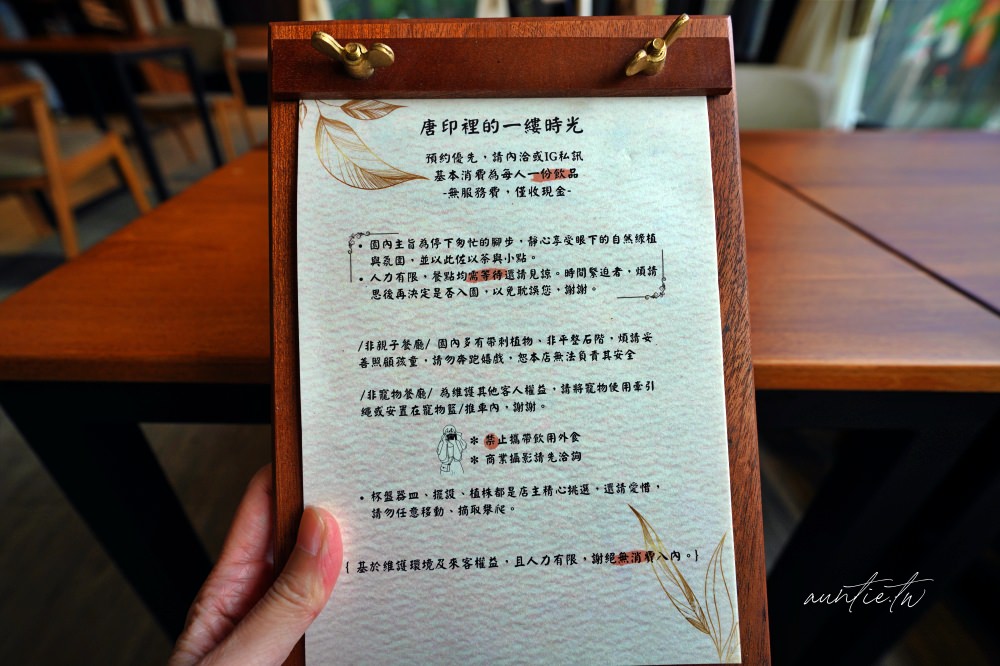 唐印裡的一縷時光
預約優先，請內洽或IG私訊
基本消費為每人一份飲品
-無服務費，僅收現金-
• 園內主旨為停下匆忙的腳步，靜心享受眼下的自然綠植
與氛圍，並以此佐以茶與小點。
• 人力有限，餐點均需等待還請見諒。時間緊迫者，煩請
思後再決定是否入園，以免耽誤您，謝謝。
/非親子餐廳/ 園內多有帶刺植物、非平整石階，煩請妥
善照顧孩童，請勿奔跑嬉戲，恕本店無法負責其安全
/非寵物餐廳/ 為維護其他客人權益，請將寵物使用牽引
繩或安置在寵物籃/推車內，謝謝。
* 禁止攜帶飲用外食
* 商業攝影請先洽詢
• 杯盤器皿、擺設、植株都是店主精心挑選，還請愛惜，
請勿任意移動、摘取攀爬。
{ 基於維護環境及來客權益，且人力有限，謝絕無消費入內。}
auntie.tw